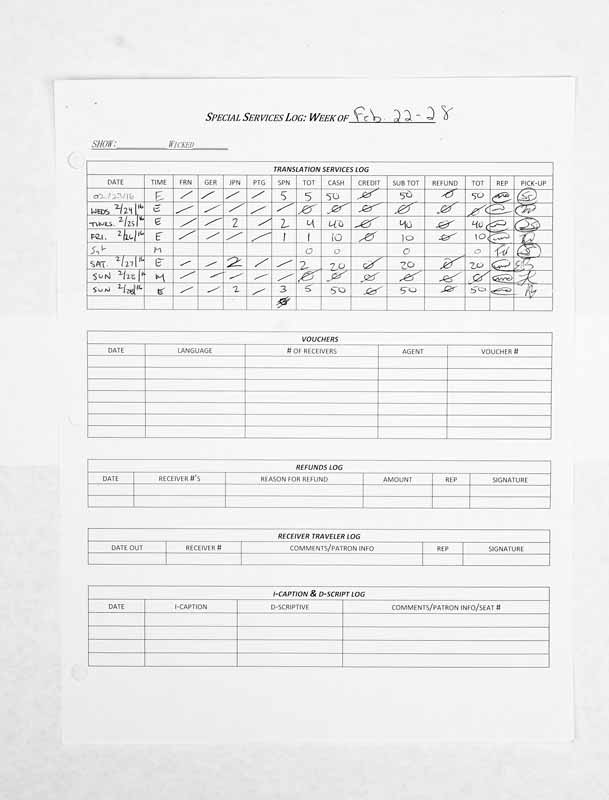 SPECIAL SERVICES LOG: WEEK OF Feb. 22-28
SHOW: WICKED
TRANSLATION SERVICES LOG
DATE TIME FRN GER JPN PTG SPN TOT CASH CREDIT SUB TOT REFUND TOT REP PICK-UP
02/23/16 E / / / / 5 5 50 Ø 50 Ø 50
WEDS 2/24/16 E / / / / / Ø Ø Ø Ø Ø Ø
THURS. 2/25/16 E / / 2 / 2 4 40 Ø 40 Ø 40
FRI. 2/26/16 E / / / / 1 1 10 Ø 10 Ø 10
Sat M 0 0 0 0
SAT. 2/27/16 E / / 2 / / 2 20 Ø 20 Ø 20
SUN 2/28/16 M / / / / / Ø Ø Ø Ø Ø Ø
SUN 2/28/16 E / / 2 / 3 5 50 Ø 50 Ø 50
VOUCHERS
DATE LANGUAGE # OF RECEIVERS AGENT VOUCHER #
REFUNDS LOG
DATE RECEIVER #'S REASON FOR REFUND AMOUNT REP SIGNATURE
RECEIVER TRAVELER LOG
DATE OUT RECEIVER # COMMENTS/PATRON INFO REP SIGNATURE
I-CAPTION & D-SCRIPT LOG
DATE I-CAPTION D-SCRIPTIVE COMMENTS/PATRON INFO/SEAT #